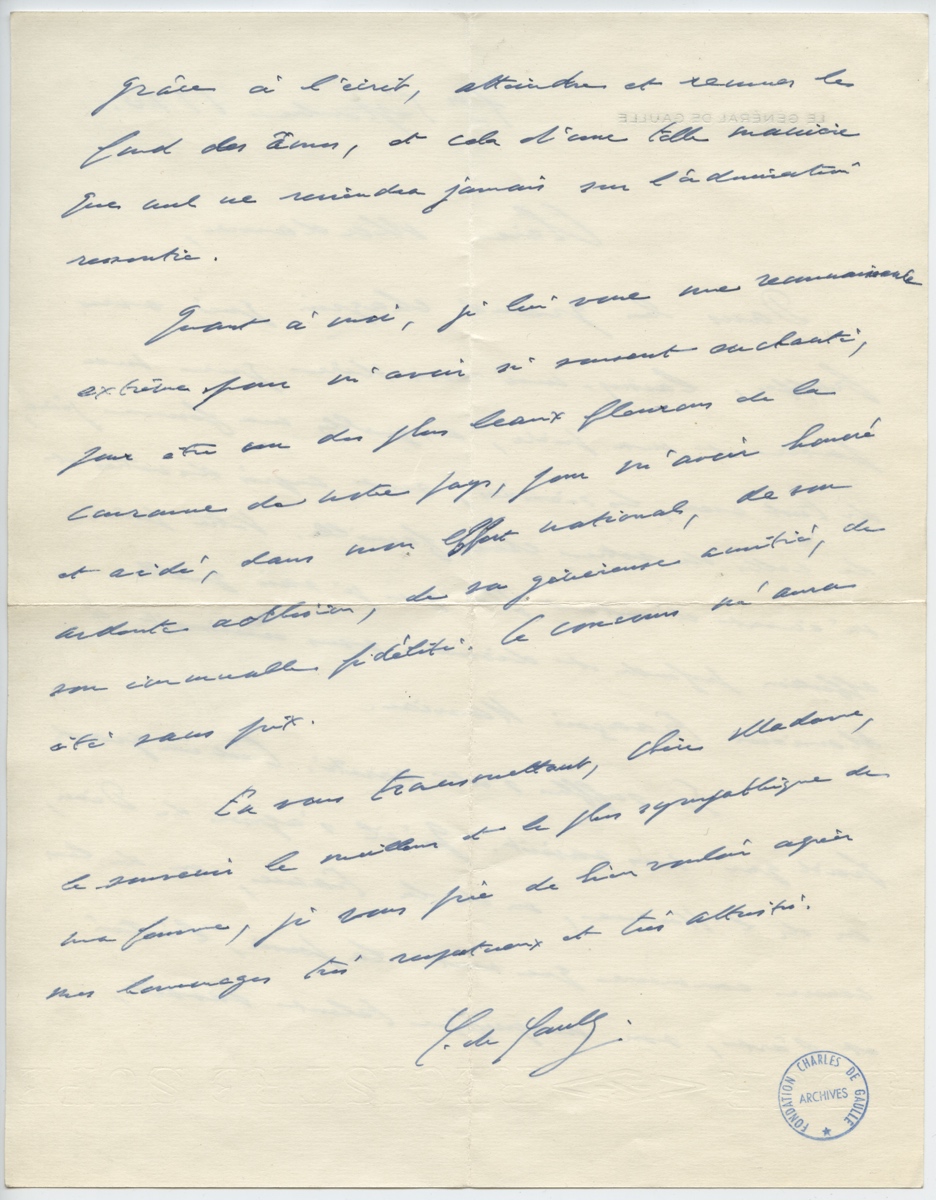 grâce à l'écrit, atteindre et remuer le
LE GÉNÉRAL DE GAULLE
fond des âmes, et cela d'une telle manière
que nul ne reviendra jamais sur l'admiration
ressentie.
Quant à moi, je lui voue une reconnaissance
extrême pour m'avoir si souvent enchanté,
pour être un des plus beaux fleurons de la
couronne de notre pays, pour m'avoir honoré
et aidé, dans mon effort national, de son
ardente adhésion, de sa généreuse amitié, de
son immuable fidélité. Ce concours m'aura
été sans prix.
En vous transmettant, chère Madame,
le souvenir le meilleur et le plus sympathique de
ma femme, je vous prie de bien vouloir agréer
mes hommages très respectueux et très attristés.
C. de Gaulle.
FONDATION CHARLES DE GAULLE
ARCHIVES